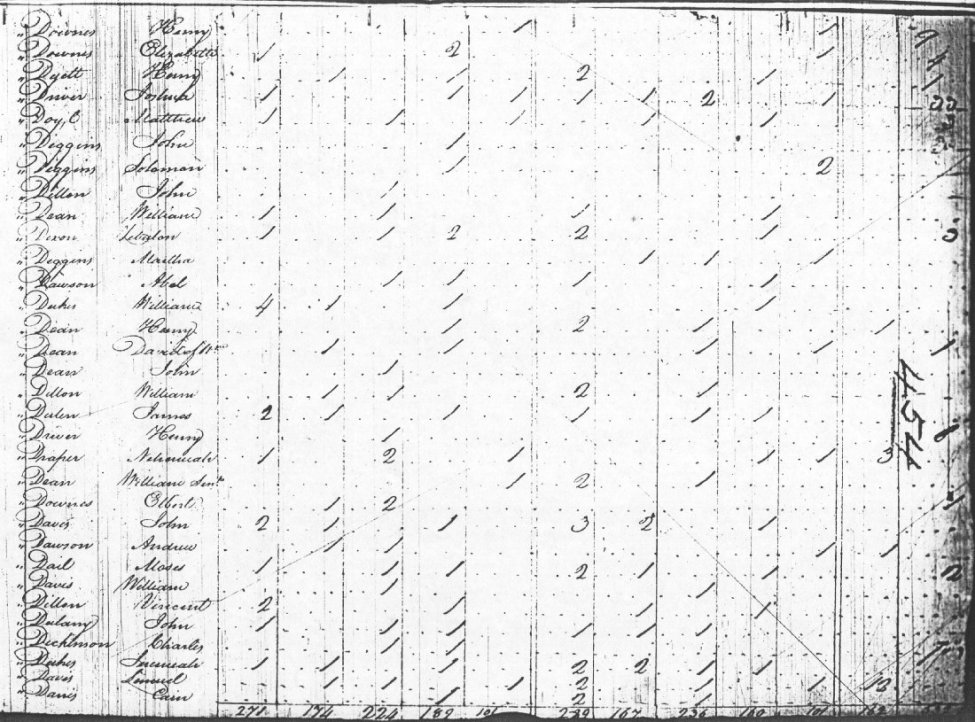 " Downes Henry / /
" Downes Elizabeth / 2 /
" Dyott Henry / / 2 /
" Driver Joshua / / / / / 2 /
" Doy, C Matthew / / / / /
" Diggins John /
" Diggins Solomon / 2
" Dillon John /
" Dean William / / / /
" Dixon / / 2 2 /
" Deggins Martha / / /
" Dawson Abel / / / /
" Dukes William 4 / / /
" Dean Henry / 2 / /
" Dean David of Wm / / / / /
" Dean John /
" Dillon William / / 2 /
" James 2 / / / / / /
" Driver Henry /
" Draper Nehemiah / 2 / / / 3
" Dean William Senr / 2 /
" Downes Elbert / 2
" Davis John 2 / / 3 2 /
" Dawson Andrew / / / /
" Dail Moses / / / 2 / / 2
" Davis William / /
" Dillon Vincent 2 / / / /
" Dulany John / / / / / /
" Dickinson Charles / / /
" Dukes Jeremiah / / / 2 2 / /
" Davis Lemuel / / / / 2 / / 12
" Davis Cain / 2 /
271 174 224 189 101 239 167 236
454